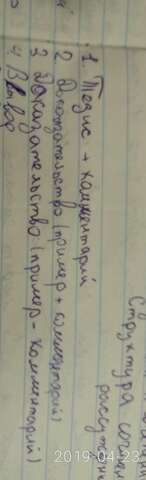 Структура сочинен
рассужден
1. Тезис + комментарий
2. Доказательство (пример + комментарий)
3 Доказательство (пример - комментарий)
4. Вывод
2019-04-23